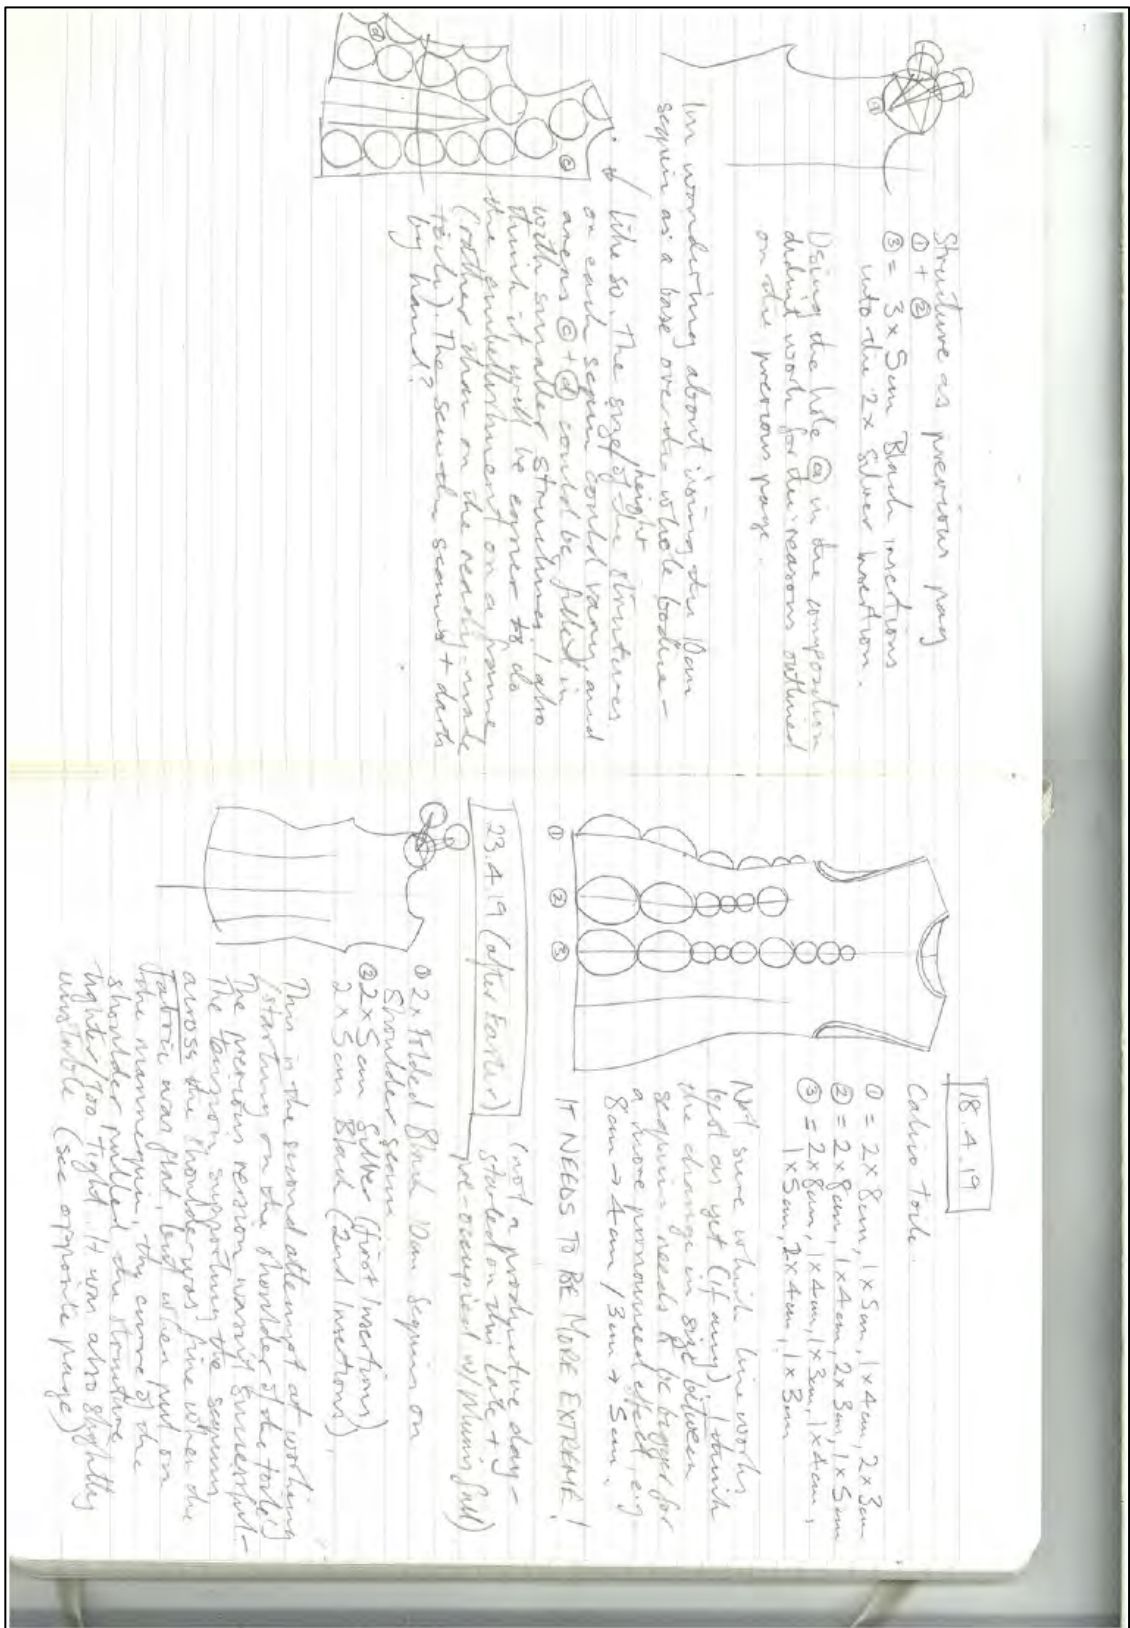 Structure as previous page
① + ②
③ = 3 x 5cm Black insertions
into the 2 x silver insertion.
Using the hole ⓐ in the composition
didn't work for the reasons outlined
on the previous page.
①
Im wondering about using the 10cm
sequin as a base over the whole bodice -
like so. The size/height of the structures
on each sequin could vary and
areas ⓒ + ⓓ could be filled in
with smaller structures. I also
think it will be easier to do
the embellishment on a frame
(rather than on the ready-made
toile). The sew the seams + darts
by hand?
ⓓ
ⓒ
18.4.19
Calico toile.
① = 2 x 8cm, 1 x 5cm, 1 x 4cm, 2 x 3cm
② = 2 x 8cm, 1 x 4cm, 2 x 3cm, 1 x 5cm
③ = 2 x 8cm, 1 x 4cm, 1 x 3cm, 1 x 4cm,
1 x 5cm, 2 x 4cm, 1 x 3cm
Not sure which line works
best as yet (if any) I think
the change in size between
sequins needs to be bigger for
a more pronounced effect, e.g.
8cm → 4cm / 3cm → 5cm.
① ② ③
IT NEEDS TO BE MORE EXTREME!
23.4.19 (after Easter)
(not a productive day -
started on this late +
pre-occupied w/
① 2 x folded Black 10cm sequins on
Shoulder seam
② 2 x 5cm silver (first insertions)
2 x 5cm Black (2nd insertions)
This is the second attempt at working
/starting on the shoulder of the toile.
The previous version wasn't successful -
The tension supporting the sequins
across the shoulder was fine when the
fabric was flat, but when put on
the mannequin, the curve of the
shoulder pulled the structure
tighter / too tight. It was also slightly
unstable (see opposite page)